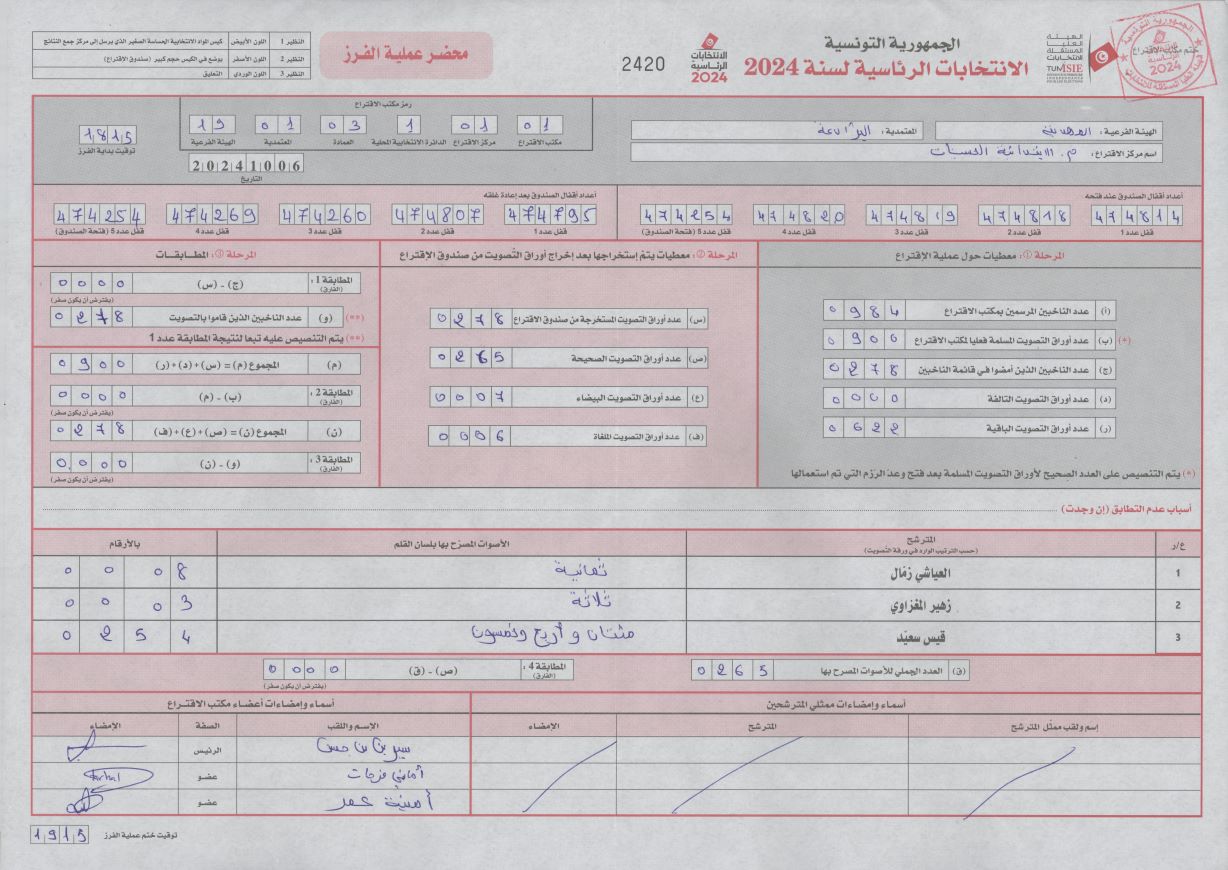 الجمهورية التونسية
الانتخابات الرئاسية لسنة 2024
الهيئة العليا المستقلة للانتخابات
ختم مكتب الاقتراع
الانتخابات الرئاسية 2024
2420
محضر عملية الفرز
النظير 1 اللون الأبيض كيس المواد الانتخابية الحساسة الصغير الذي يرسل إلى مركز جمع النتائج
النظير 2 اللون الأصفر يوضع في الكيس حجم كبير (صندوق الإقتراع)
النظير 3 اللون الوردي التعليق
الهيئة الفرعية: المهدية المعتمدية:
اسم مركز الإقتراع: م. الابتدائية الحسيات
رمز مكتب الاقتراع
01 01 1 03 01 19
مكتب الاقتراع مركز الاقتراع الدائرة الانتخابية المحلية العمادة المعتمدية الهيئة الفرعية
20241006
التاريخ
1815
توقيت بداية الفرز
أعداد أقفال الصندوق عند فتحه
474814 474818 474819 474820 474254
قفل عدد 1 قفل عدد 2 قفل عدد 3 قفل عدد 4 قفل عدد 5 (فتحة الصندوق)
أعداد أقفال الصندوق بعد إعادة غلقه
474795 474807 474260 474269 474254
قفل عدد 1 قفل عدد 2 قفل عدد 3 قفل عدد 4 قفل عدد 5 (فتحة الصندوق)
المرحلة ①: معطيات حول عملية الإقتراع
(أ) عدد الناخبين المرسمين بمكتب الاقتراع 0984
(*) (ب) عدد أوراق التصويت المسلمة فعليا لمكتب الاقتراع 0900
(ج) عدد الناخبين الذين أمضوا في قائمة الناخبين 0278
(د) عدد أوراق التصويت التالفة 0000
(ر) عدد أوراق التصويت الباقية 0622
(*) يتم التنصيص على العدد الصحيح لأوراق التصويت المسلمة بعد فتح وعد الرزم التي تم استعمالها
المرحلة ②: معطيات يتم إستخراجها بعد إخراج أوراق التصويت من صندوق الإقتراع
(س) عدد أوراق التصويت المستخرجة من صندوق الاقتراع 0278
(ص) عدد أوراق التصويت الصحيحة 0265
(ع) عدد أوراق التصويت البيضاء 0007
(ف) عدد أوراق التصويت الملغاة 0006
المرحلة ③: المطابقات
المطابقة 1: (الفارق) (ج) - (س) 0000
(يفترض أن يكون صفر)
(**) (و) عدد الناخبين الذين قاموا بالتصويت 0278
(**) يتم التنصيص عليه تبعا لنتيجة المطابقة عدد 1
(م) المجموع (م) = (س)+(د)+(ر) 0900
المطابقة 2: (الفارق) (ب) - (م) 0000
(يفترض أن يكون صفر)
(ن) المجموع (ن) = (ص)+(ع)+(ف) 0278
المطابقة 3: (الفارق) (و) - (ن) 0000
(يفترض أن يكون صفر)
أسباب عدم التطابق (إن وجدت)
ع/ر المترشح الأصوات المصرّح بها بلسان القلم بالأرقام
(حسب الترتيب الوارد في ورقة التصويت)
1 العياشي زمّال ثمانية 0008
2 زهير المغزاوي ثلاثة 0003
3 قيس سعيّد مئتان و أربع وخمسون 0254
(ق) العدد الجملي للأصوات المصرح بها 0265
المطابقة 4: (الفارق) (ص) - (ق) 0000
(يفترض أن يكون صفر)
أسماء وإمضاءات ممثلي المترشحين
إسم ولقب ممثل المترشح المترشح الإمضاء
أسماء وإمضاءات أعضاء مكتب الاقتراع
الإسم واللقب الصفة الإمضاء
الرئيس
أماني فرحات عضو
أمنية عمر عضو
توقيت ختم عملية الفرز 1915